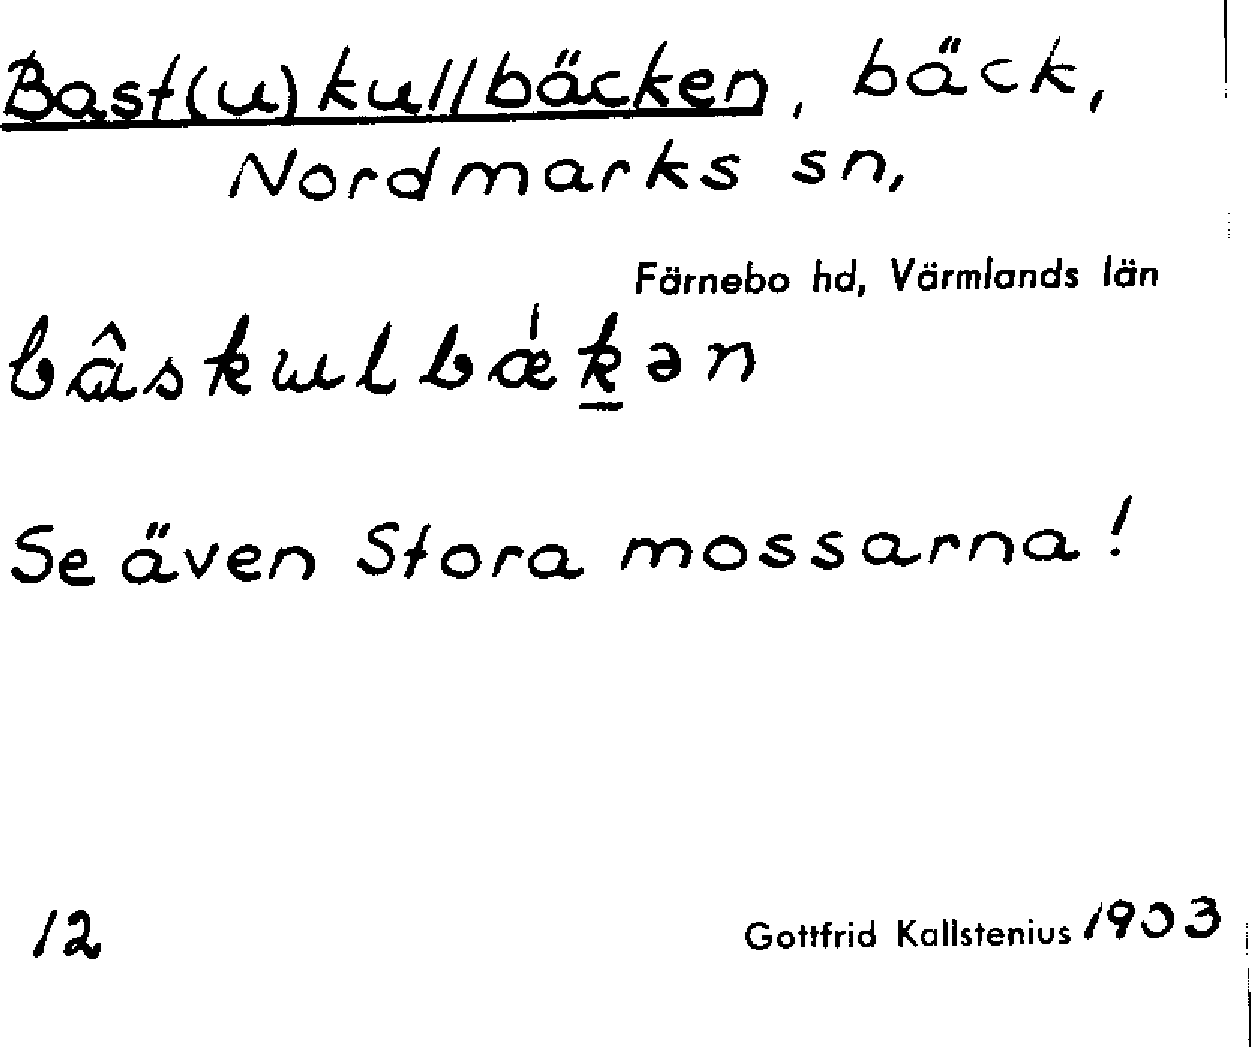 Bast(u)kullbäcken, bäck,
Nordmarks sn,
Färnebo hd, Värmlands län
bâskulbǽk̲ən
Se även Stora mossarna!
12
Gottfrid Kallstenius 1903